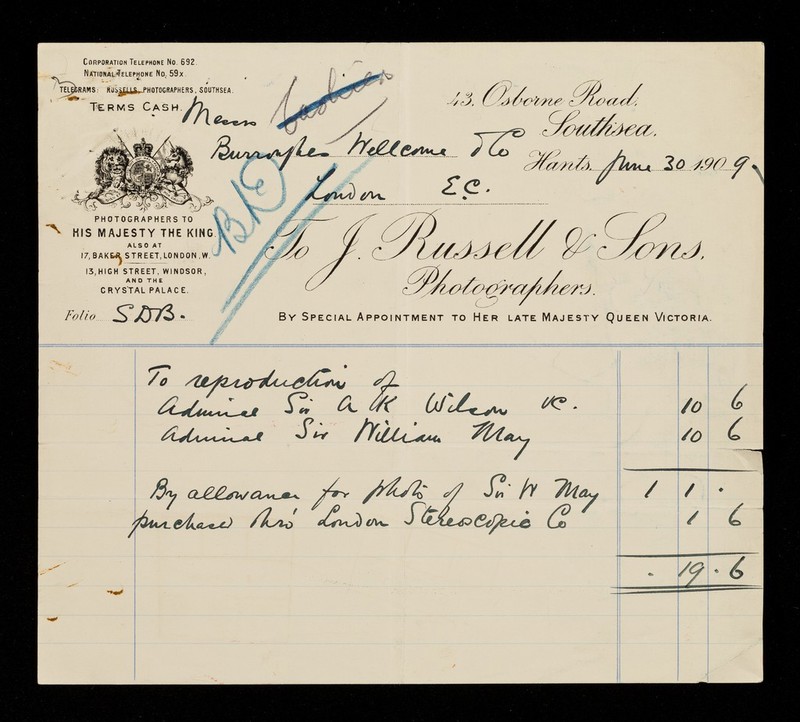 CORPORATION TELEPHONE NO. 692.
NATIONAL TELEPHONE NO. 59X
TELEGRAMS RUSSELLS, PHOTOGRAPHERS, SOUTHSEA.
TERMS CASH.
43, Osborne Road,
Southsea.
Hants, June 30 1909.
Messrs
Burroughs Wellcome & Co
London E.C.
PHOTOGRAPHERS TO
HIS MAJESTY THE KING.
ALSO AT
17, BAKER STREET, LONDON, W.
13, HIGH STREET, WINDSOR,
AND THE
CRYSTAL PALACE.
Folio SDB.
To J. Russell & Sons,
Photographers.
BY SPECIAL APPOINTMENT TO HER LATE MAJESTY QUEEN VICTORIA.
To reproduction of
Admiral Sir A K Wilson VC. 10 6
Admiral Sir William May 10 6
By allowance for photo of Sir W May 1 1 .
purchased thro' London Stereoscopic Co 1 6
. 19 . 6